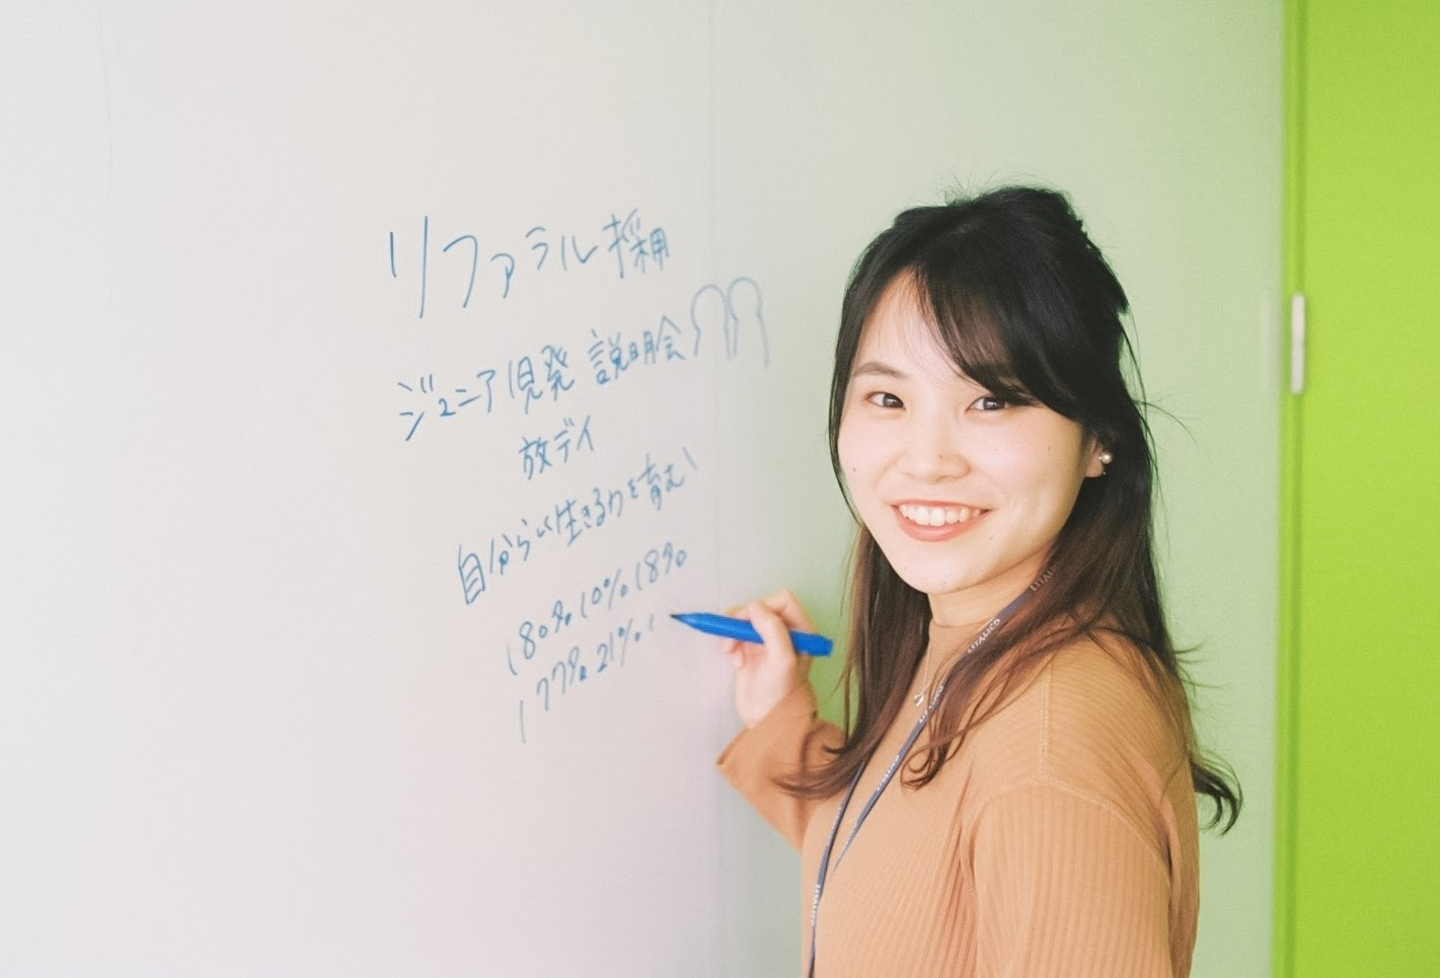 リファラル採用
ジュニア児発 説明会
放デイ
自分らしく生きる力を育む
180% 10% 18%
177% 21%
LITALICO